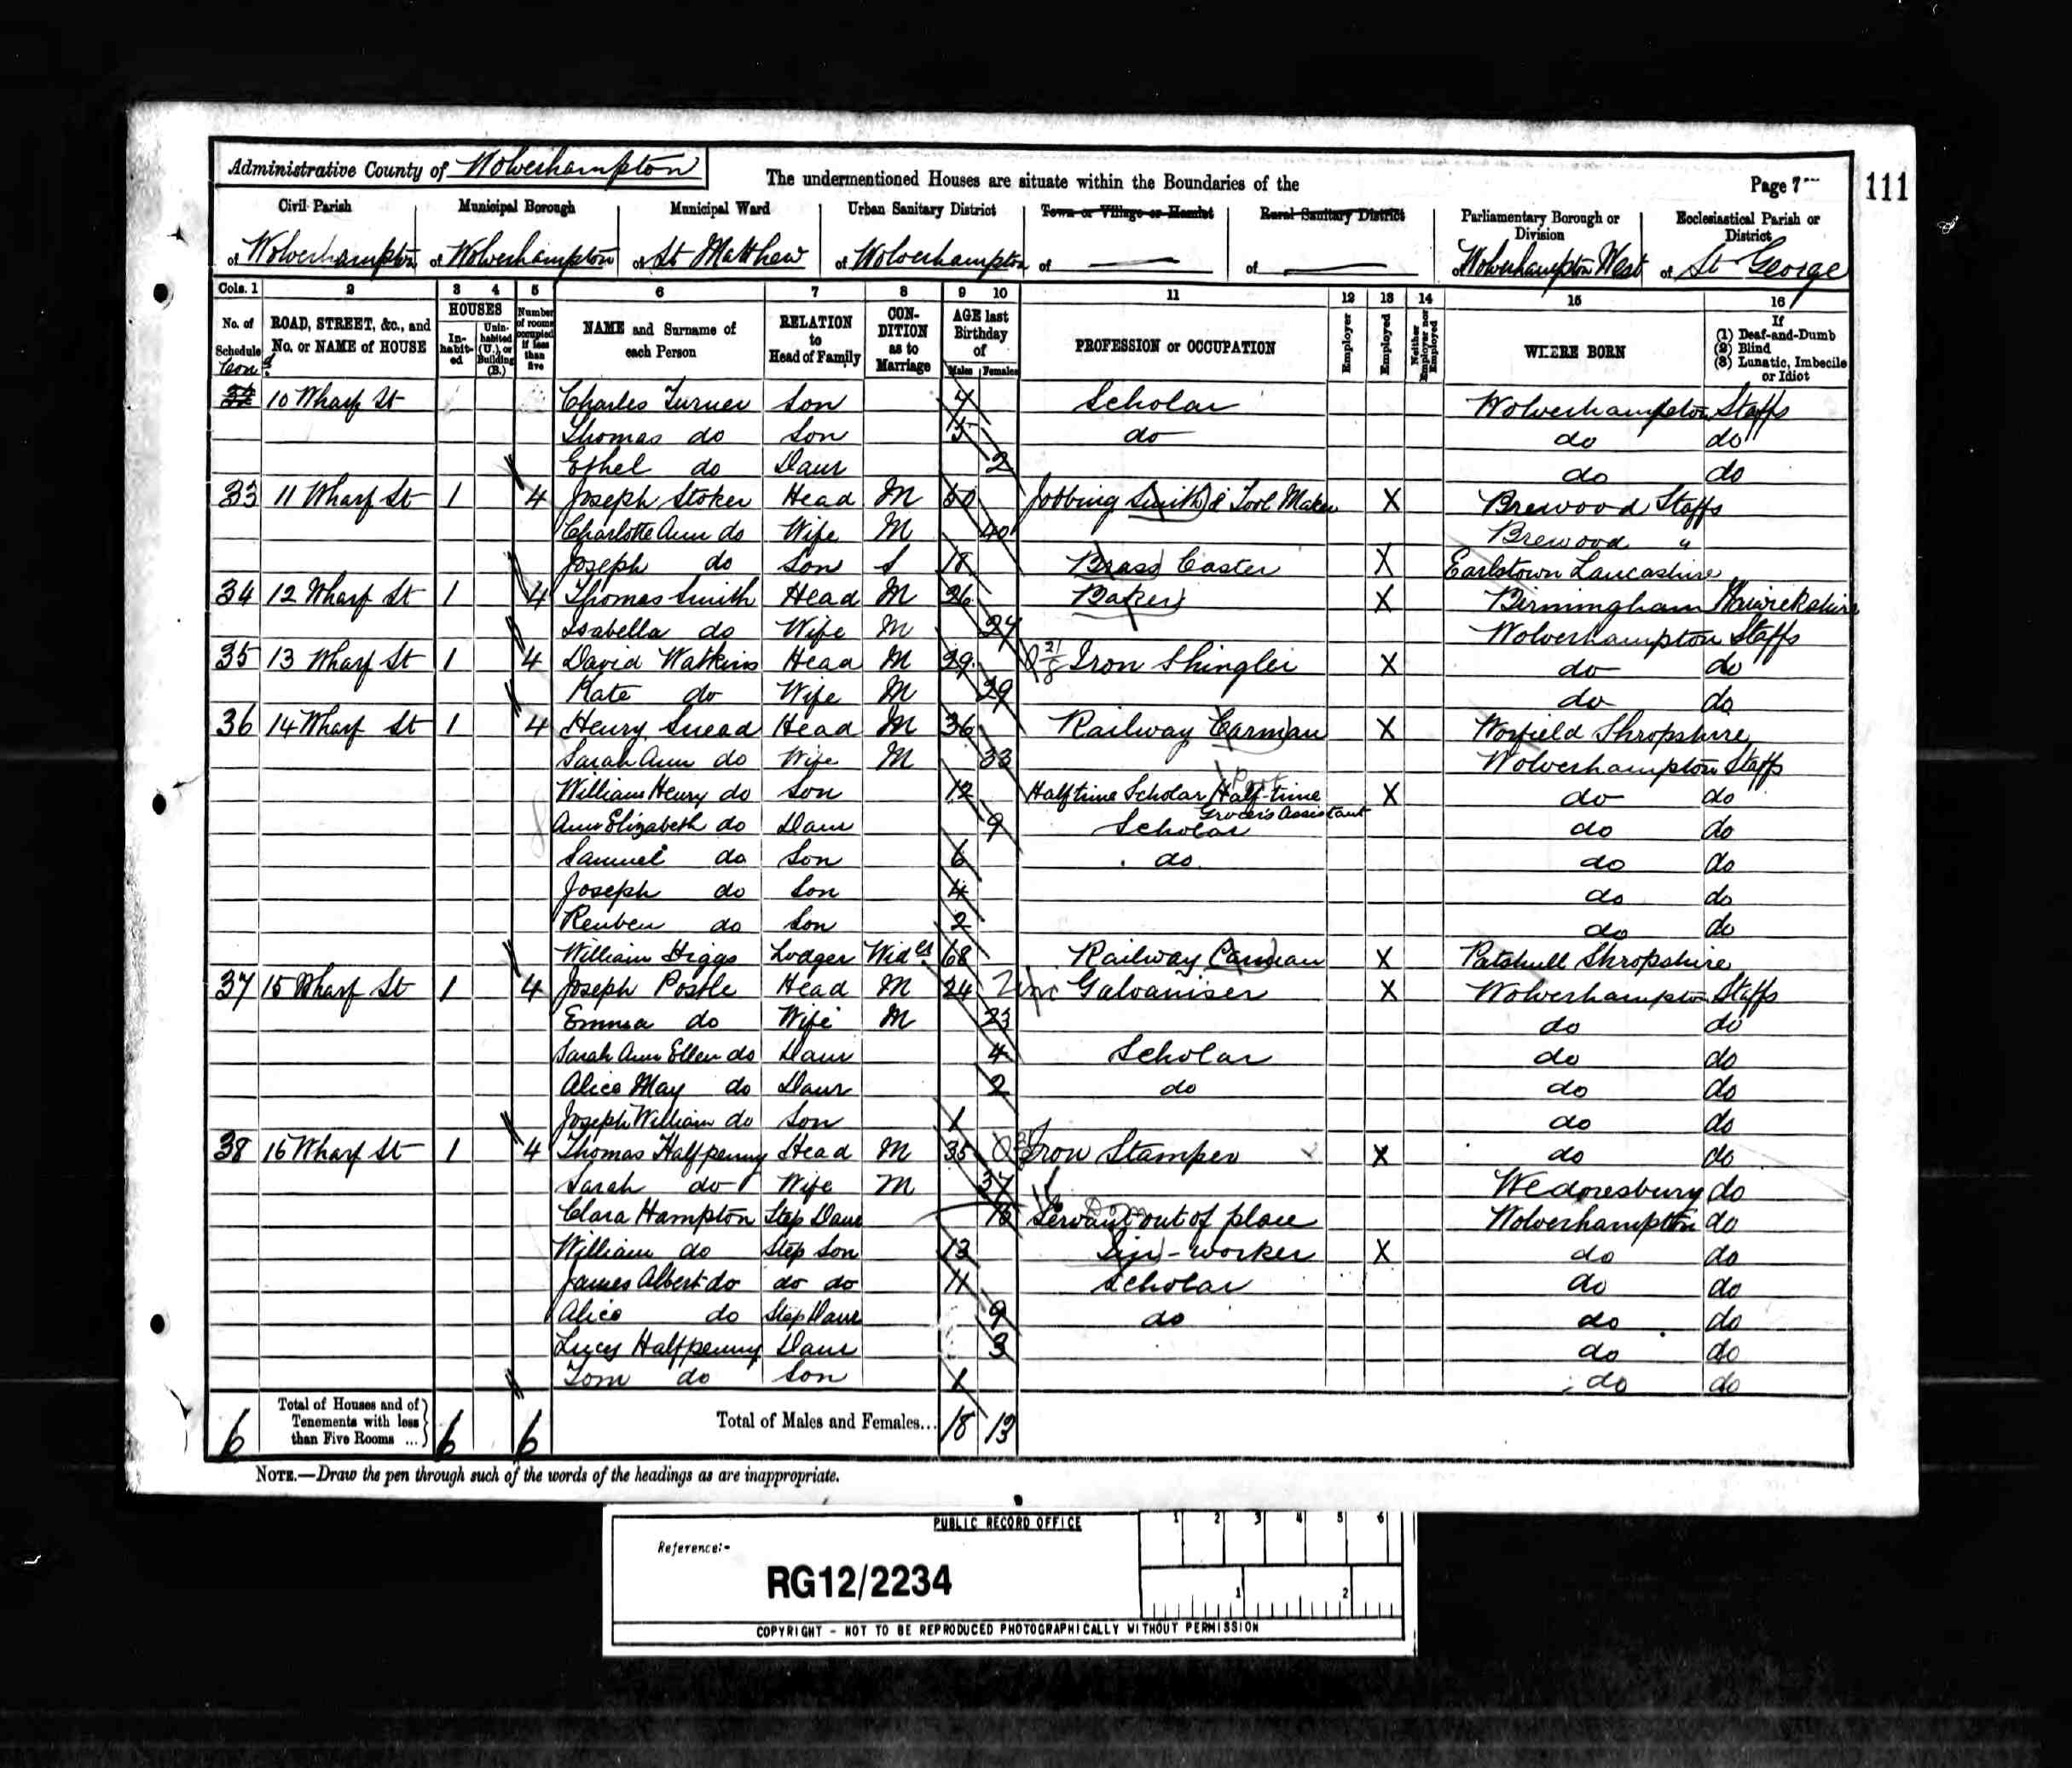 Administrative County of Wolverhampton
The undermentioned Houses are situate within the Boundaries of the
Page 7
111
Civil Parish
Municipal Borough
Municipal Ward
Urban Sanitary District
Town or Village or Hamlet
Rural Sanitary District
Parliamentary Borough or Division
Ecclesiastical Parish or District
of Wolverhampton of Wolverhampton of St Matthew of Wolverhampton of of of Wolverhampton West of St George
Cols. 1 2 3 4 5 6 7 8 9 10 11 12 13 14 15 16
No. of Schedule
ROAD, STREET, &c., and No. or NAME of HOUSE
HOUSES
In-habit-ed
Unin-habited (U.), or Building (B.)
Number of rooms occupied if less than five
NAME and Surname of each Person
RELATION to Head of Family
CON-DITION as to Marriage
AGE last Birthday of
Males Females
PROFESSION or OCCUPATION
Employer
Employed
Neither Employer nor Employed
WHERE BORN
If
(1) Deaf-and-Dumb
(2) Blind
(3) Lunatic, Imbecile or Idiot
Cond
32 10 Wharf St Charles Turner Son 7 Scholar Wolverhampton Staffs
Thomas do Son 5 do do do
Ethel do Daur 2 do do
33 11 Wharf St 1 4 Joseph Stoker Head M 60 Jobbing Smith & Tool Maker X Brewood Staffs
Charlotte Ann do Wife M 40 Brewood "
Joseph do Son S 18 Brass Caster X Earlstown Lancashire
34 12 Wharf St 1 4 Thomas Smith Head M 26 Baker X Birmingham Warwickshire
Isabella do Wife M 24 Wolverhampton Staffs
35 13 Wharf St 1 4 David Watkins Head M 29 Iron Shingler X do do
Kate do Wife M 29 do do
36 14 Wharf St 1 4 Henry Snead Head M 36 Railway Carman X Worfield Shropshire
Sarah Ann do Wife M 33 Wolverhampton Staffs
William Henry do Son 12 Halftime Scholar Half-time Grocer's Assistant X do do
Ann Elizabeth do Daur 9 Scholar do do
Samuel do Son 6 do do do
Joseph do Son 4 do do
Reuben do Son 2 do do
William Higgs Lodger Widr 68 Railway Carman X Patshull Shropshire
37 15 Wharf St 1 4 Joseph Postle Head M 24 Zinc Galvaniser X Wolverhampton Staffs
Emma do Wife M 23 do do
Sarah Ann Ellen do Daur 4 Scholar do do
Alice May do Daur 2 do do do
Joseph William do Son 1 do do
38 16 Wharf St 1 4 Thomas Halfpenny Head M 35 Iron Stamper X do do
Sarah do Wife M 37 Wednesbury do
Clara Hampton Step Daur Servant out of place Wolverhampton do
William do Step Son 13 Tin-worker X do do
James Albert do do do 11 Scholar do do
Alice do Step Daur 9 do do do
Lucy Halfpenny Daur 3 do do
Tom do Son 1 do do
6 Total of Houses and of Tenements with less than Five Rooms ... 6 6 Total of Males and Females... 18 13
NOTE.—Draw the pen through such of the words of the headings as are inappropriate.
PUBLIC RECORD OFFICE
1 2 3 4 5 6
Reference:-
RG12/2234
1 2
COPYRIGHT - NOT TO BE REPRODUCED PHOTOGRAPHICALLY WITHOUT PERMISSION